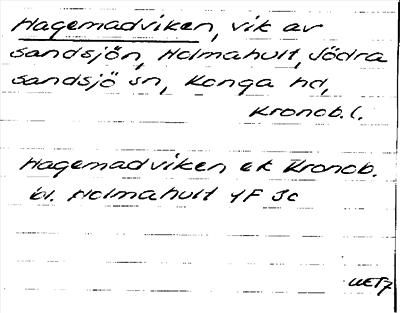 Hagemadviken, vik av
Sandsjön, Holmahult, Södra
Sandsjö sn, Konga hd,
Kronob. l.
Hagemadviken ek Kronob.
bl. Holmahult 4F Jc